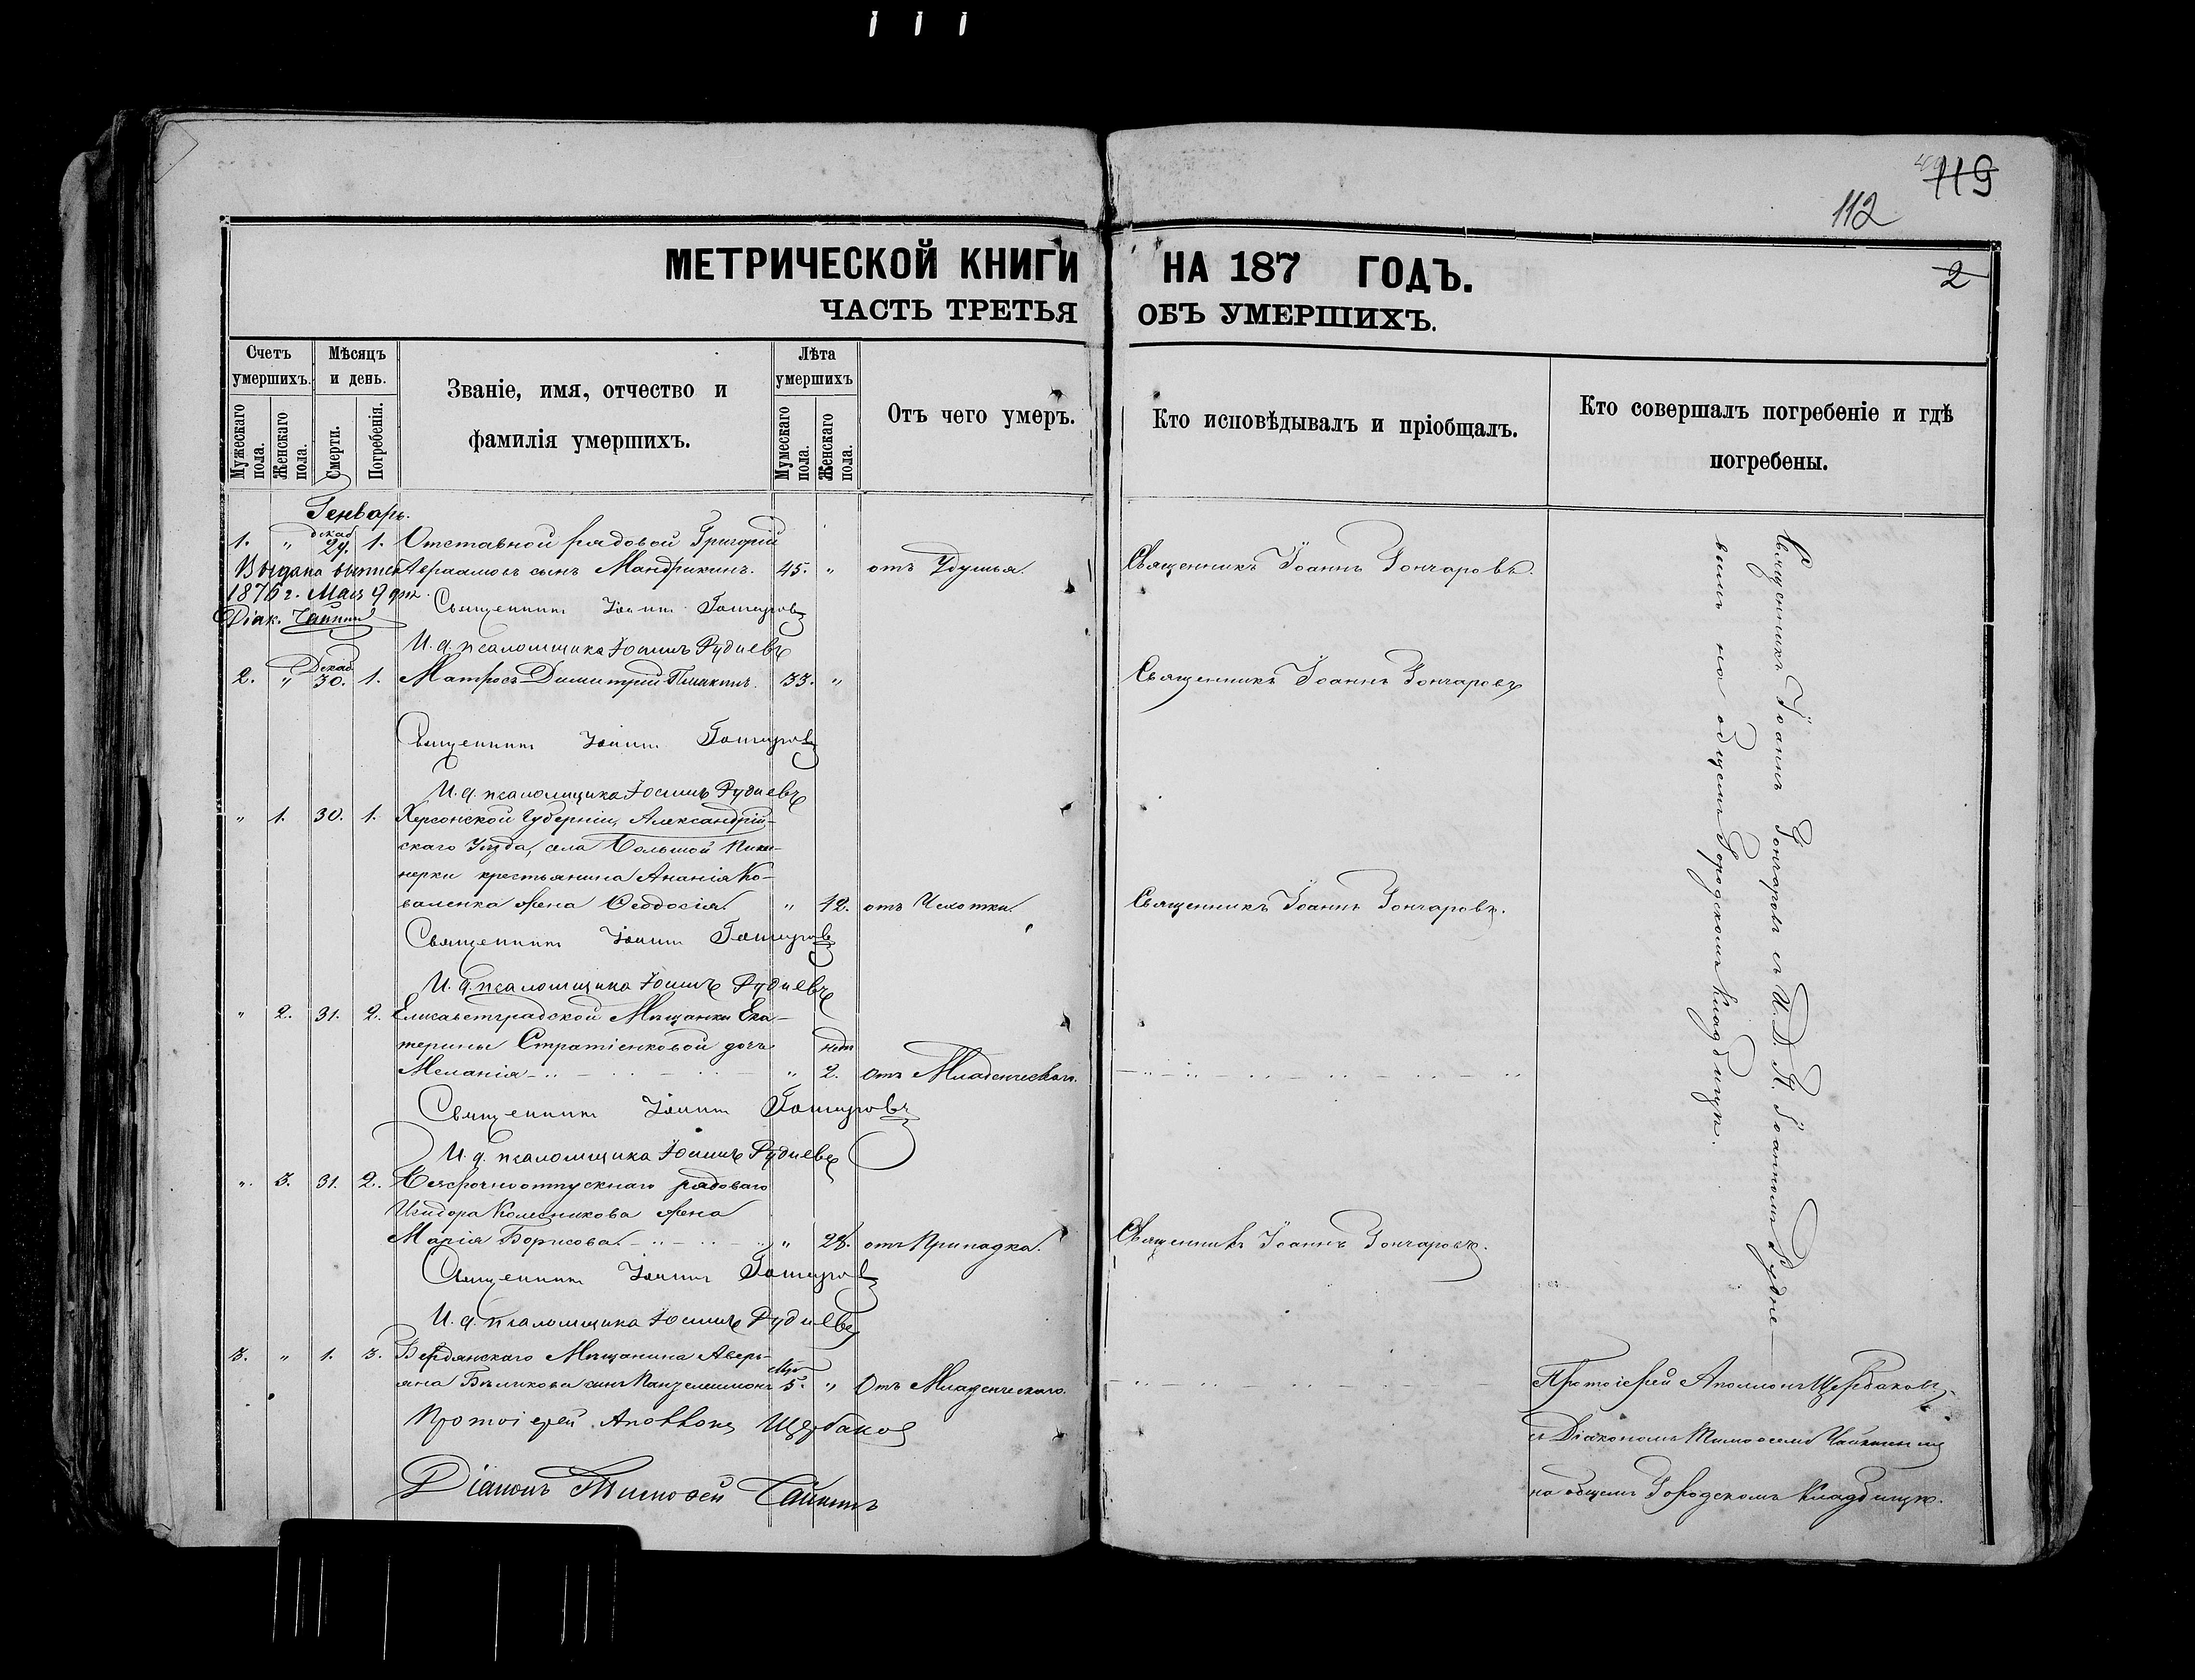 119
112
МЕТРИЧЕСКОЙ КНИГИ НА 187 ГОДЪ.
2
ЧАСТЬ ТРЕТЬЯ ОБЪ УМЕРШИХЪ.
Счетъ умершихъ.
Мужескаго пола.
Женскаго пола.
Мѣсяцъ и день.
Смерти.
Погребенія.
Званіе, имя, отчество и
фамилія умершихъ.
Лѣта умершихъ
Мужескаго пола.
Женскаго пола.
Отъ чего умеръ.
Кто исповѣдывалъ и пріобщалъ.
Кто совершалъ погребеніе и гдѣ
погребены.
Генварь.
декаб
1. „ 29. 1. Отставной рядовой Григорій
Авраамовъ сынъ Мандрикинъ. 45. „ отъ Удушья Священникъ Іоаннъ Гончаровъ.
Выдана выпись
1876 г. Мая 9 дня
Діак. Чайкинъ
Священникъ Іоаннъ Гончаровъ
И. д. псаломщика Іоаннъ Рудневъ
Декаб.
2. „ 30. 1. Матросъ Димитрій 33. „ Священникъ Іоаннъ Гончаровъ
Священникъ Іоаннъ Гончаровъ
И. д. псаломщика Іоаннъ Рудневъ
„ 1. 30. 1. Херсонской Губерніи, Александрій-
скаго Уѣзда, села Большой
крестьянина Ананія Ко-
валенка жена Ѳеодосія. „ 42. отъ Чахотки. Священникъ Іоаннъ Гончаровъ.
Священникъ Іоаннъ Гончаровъ
И. д. псаломщика Іоаннъ Рудневъ
„ 2. 31. 2. Елисаветградской Мѣщанки Ека-
терины Стратіенковой дочь нед.
Меланія „ 2. отъ Младенческаго.
Священникъ Іоаннъ Гончаровъ
И. д. псаломщика Іоаннъ Рудневъ
„ 3. 31. 2. Безсрочноотпускнаго рядоваго
Исидора Колесникова жена
Марія Борисова. „ 28. отъ Припадка. Священникъ Іоаннъ Гончаровъ.
Священникъ Іоаннъ Гончаровъ
И. д. псаломщика Іоаннъ Рудневъ
Священникъ Іоаннъ Гончаровъ съ И. Д. П. Іоанномъ Рудне-
вымъ на общемъ Городскомъ Кладбищѣ.
3. „ 1. 3. Бердянскаго Мѣщанина Аверь-
яна Бѣликова сынъ Пантелеимонъ 5. „ Отъ Младенческаго. Протоіерей Аполлонъ Щербаковъ
Протоіерей Аполлонъ Щербаковъ
съ Діакономъ Тимоѳеемъ Чайкинымъ
Діаконъ Тимоѳей Чайкинъ
на общемъ Городскомъ Кладбищѣ.